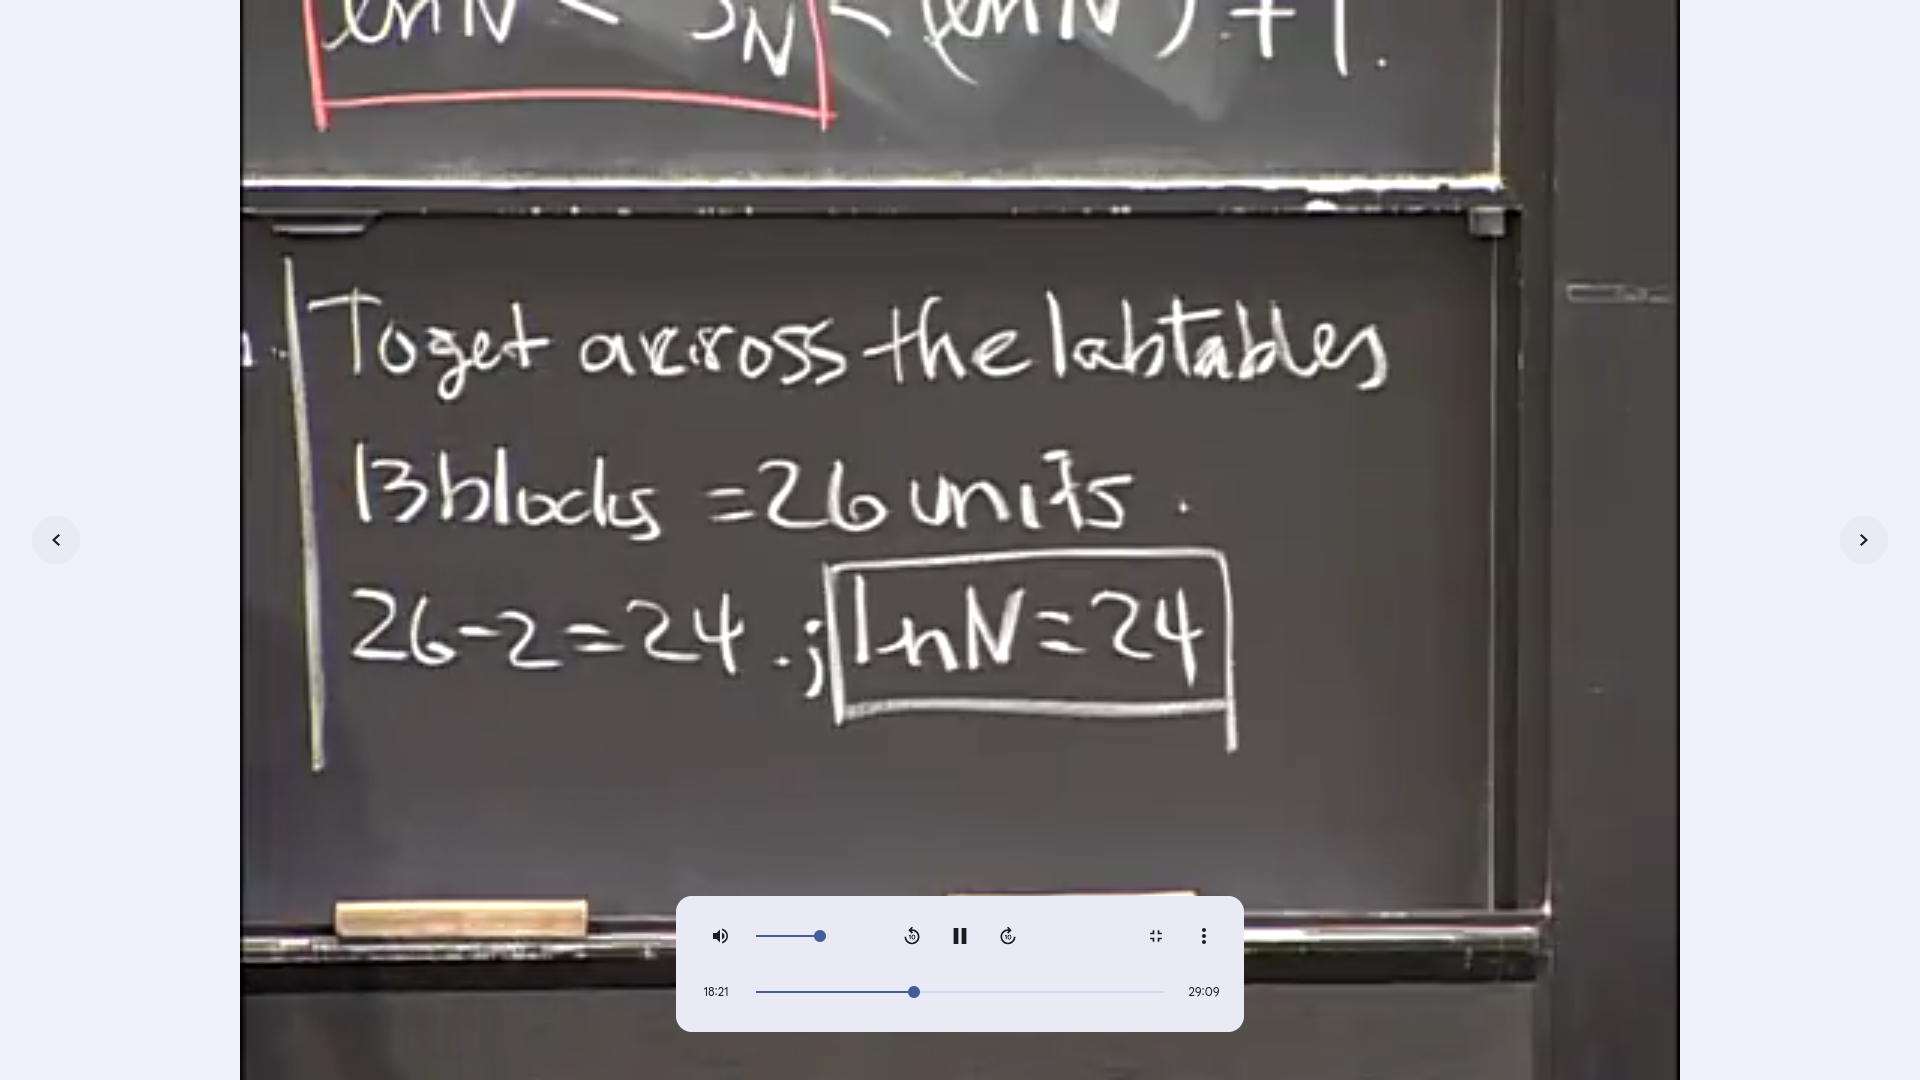 ln N < S_N < (ln N) + 1.
To get across the labtables
13 blocks = 26 units.
26-2=24.; ln N = 24
18:21
29:09